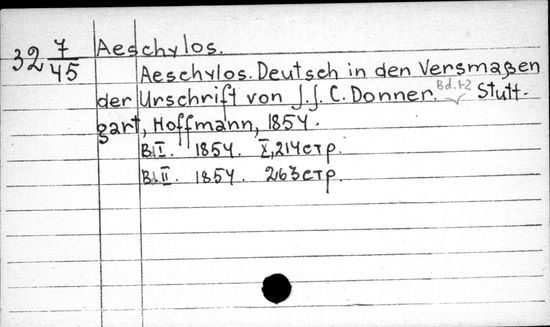 32 7/45 Aeschylos.
Aeschylos. Deutsch in den Versmaßen
der Urschrift von J. J. C. Donner. Bd. 1-2 Stutt-
gart, Hoffmann, 1854.
Bd. I. 1854. X, 214 стр.
Bd. II. 1854. 263 стр.